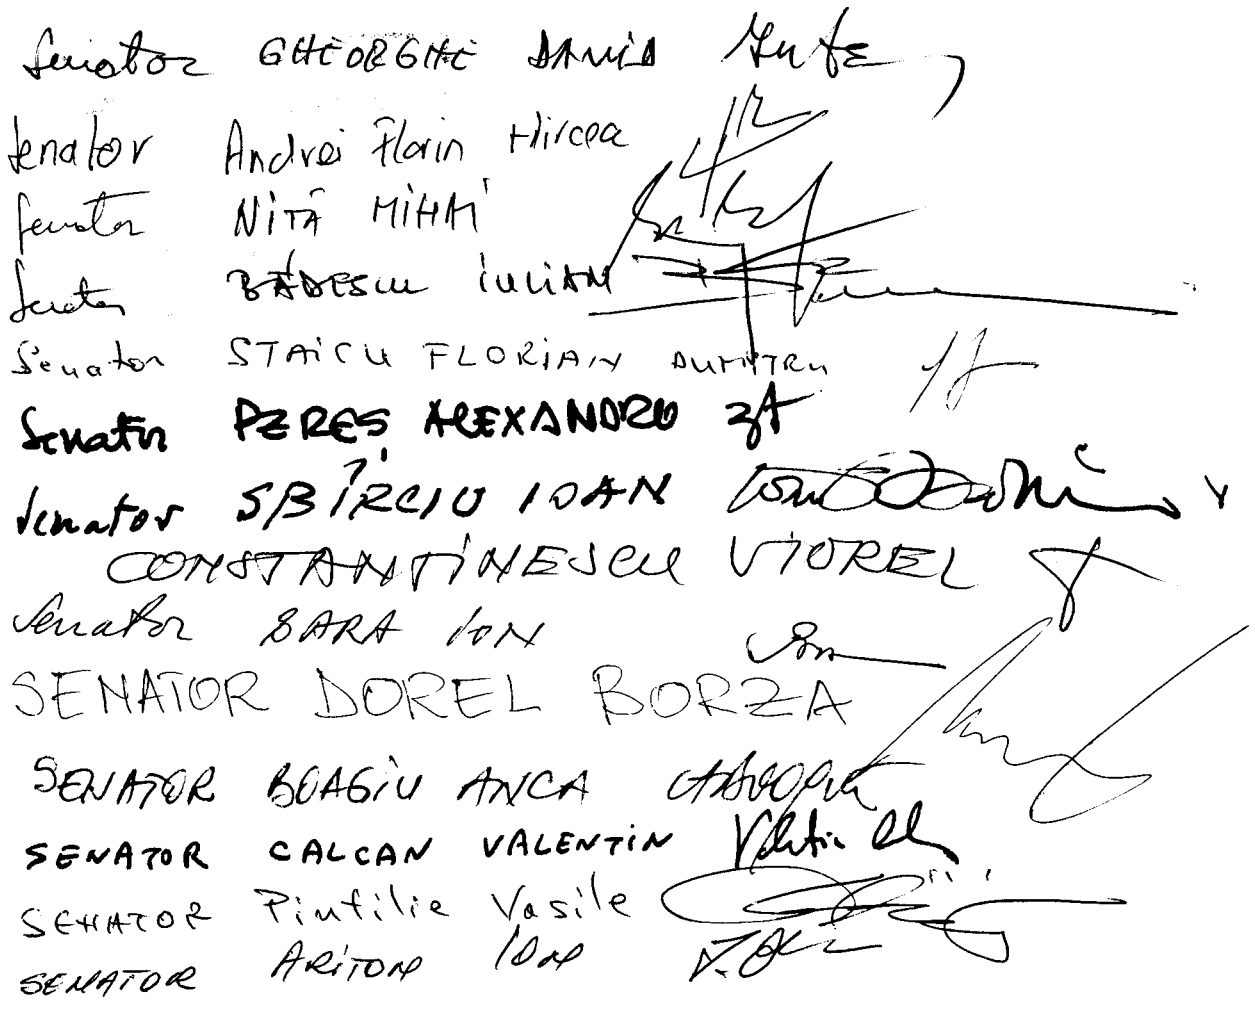 Senator GHEORGHE DAVID
Senator Andrei Florin Mircea
Senator NIȚĂ MIHAI
Senator BĂDESCU IULIAN
Senator STAICU FLORIAN DUMITRU
Senator PEREȘ ALEXANDRU
Senator SBÎRCIU IOAN
CONSTANTINESCU VIOREL
Senator BARA ION
SENATOR DOREL BORZA
SENATOR BOAGIU ANCA
SENATOR CALCAN VALENTIN
SENATOR Pintilie Vasile
SENATOR ARITON ION